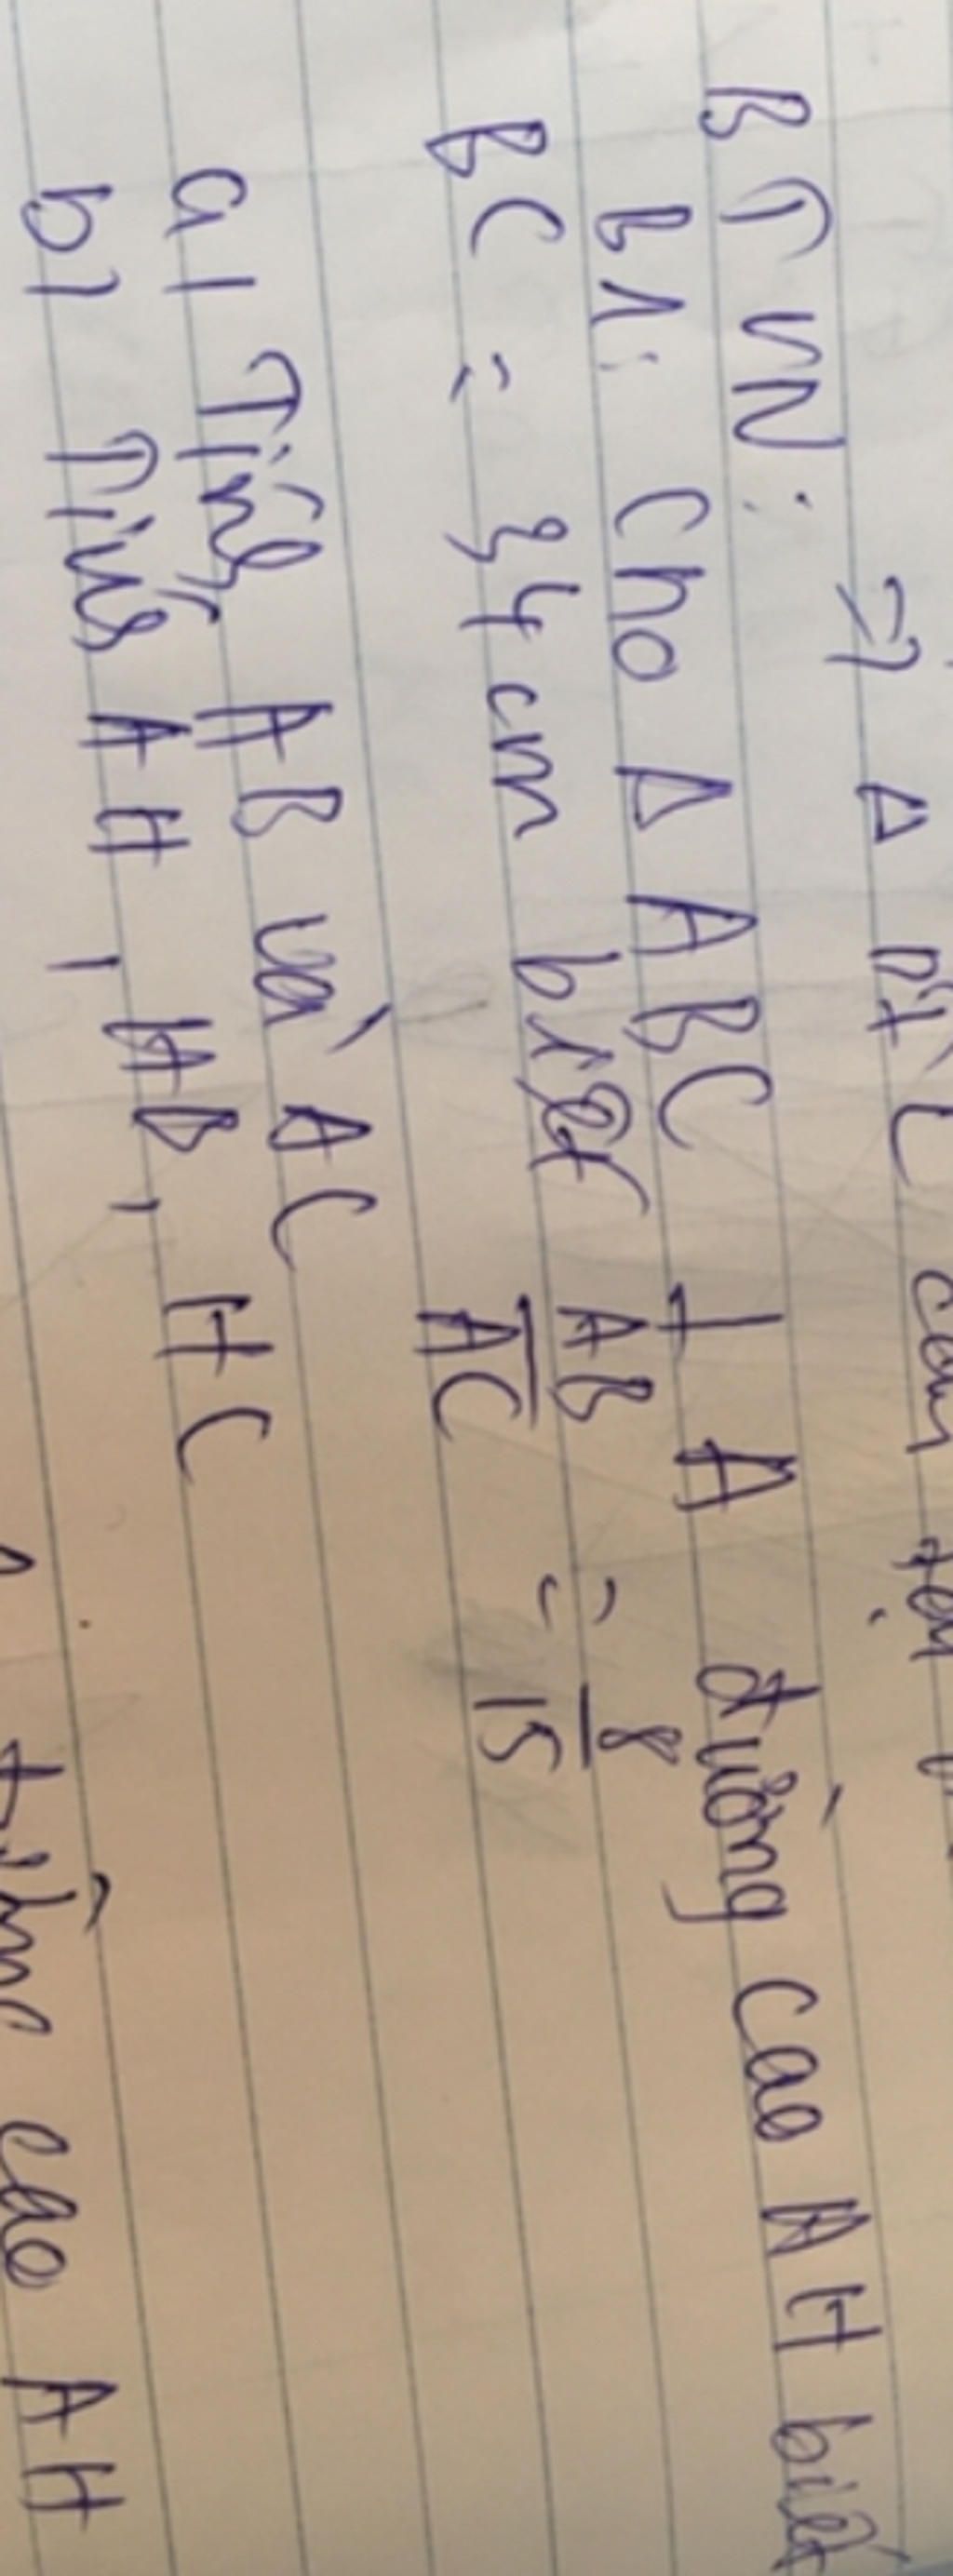 => Δ
BTVN:
B1: Cho Δ ABC ⊥ A đường cao AH biết
BC = 34cm biết AB/AC = 8/15
a) Tính AB và AC
b) Tính AH, HB, HC
cao AH